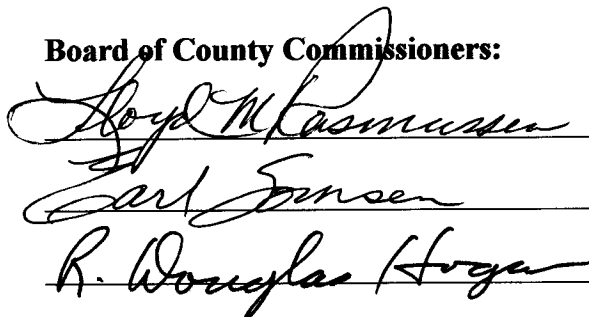 Board of County Commissioners:
Lloyd M Rasmussen
Earl Somsen
R. Douglas Hogan